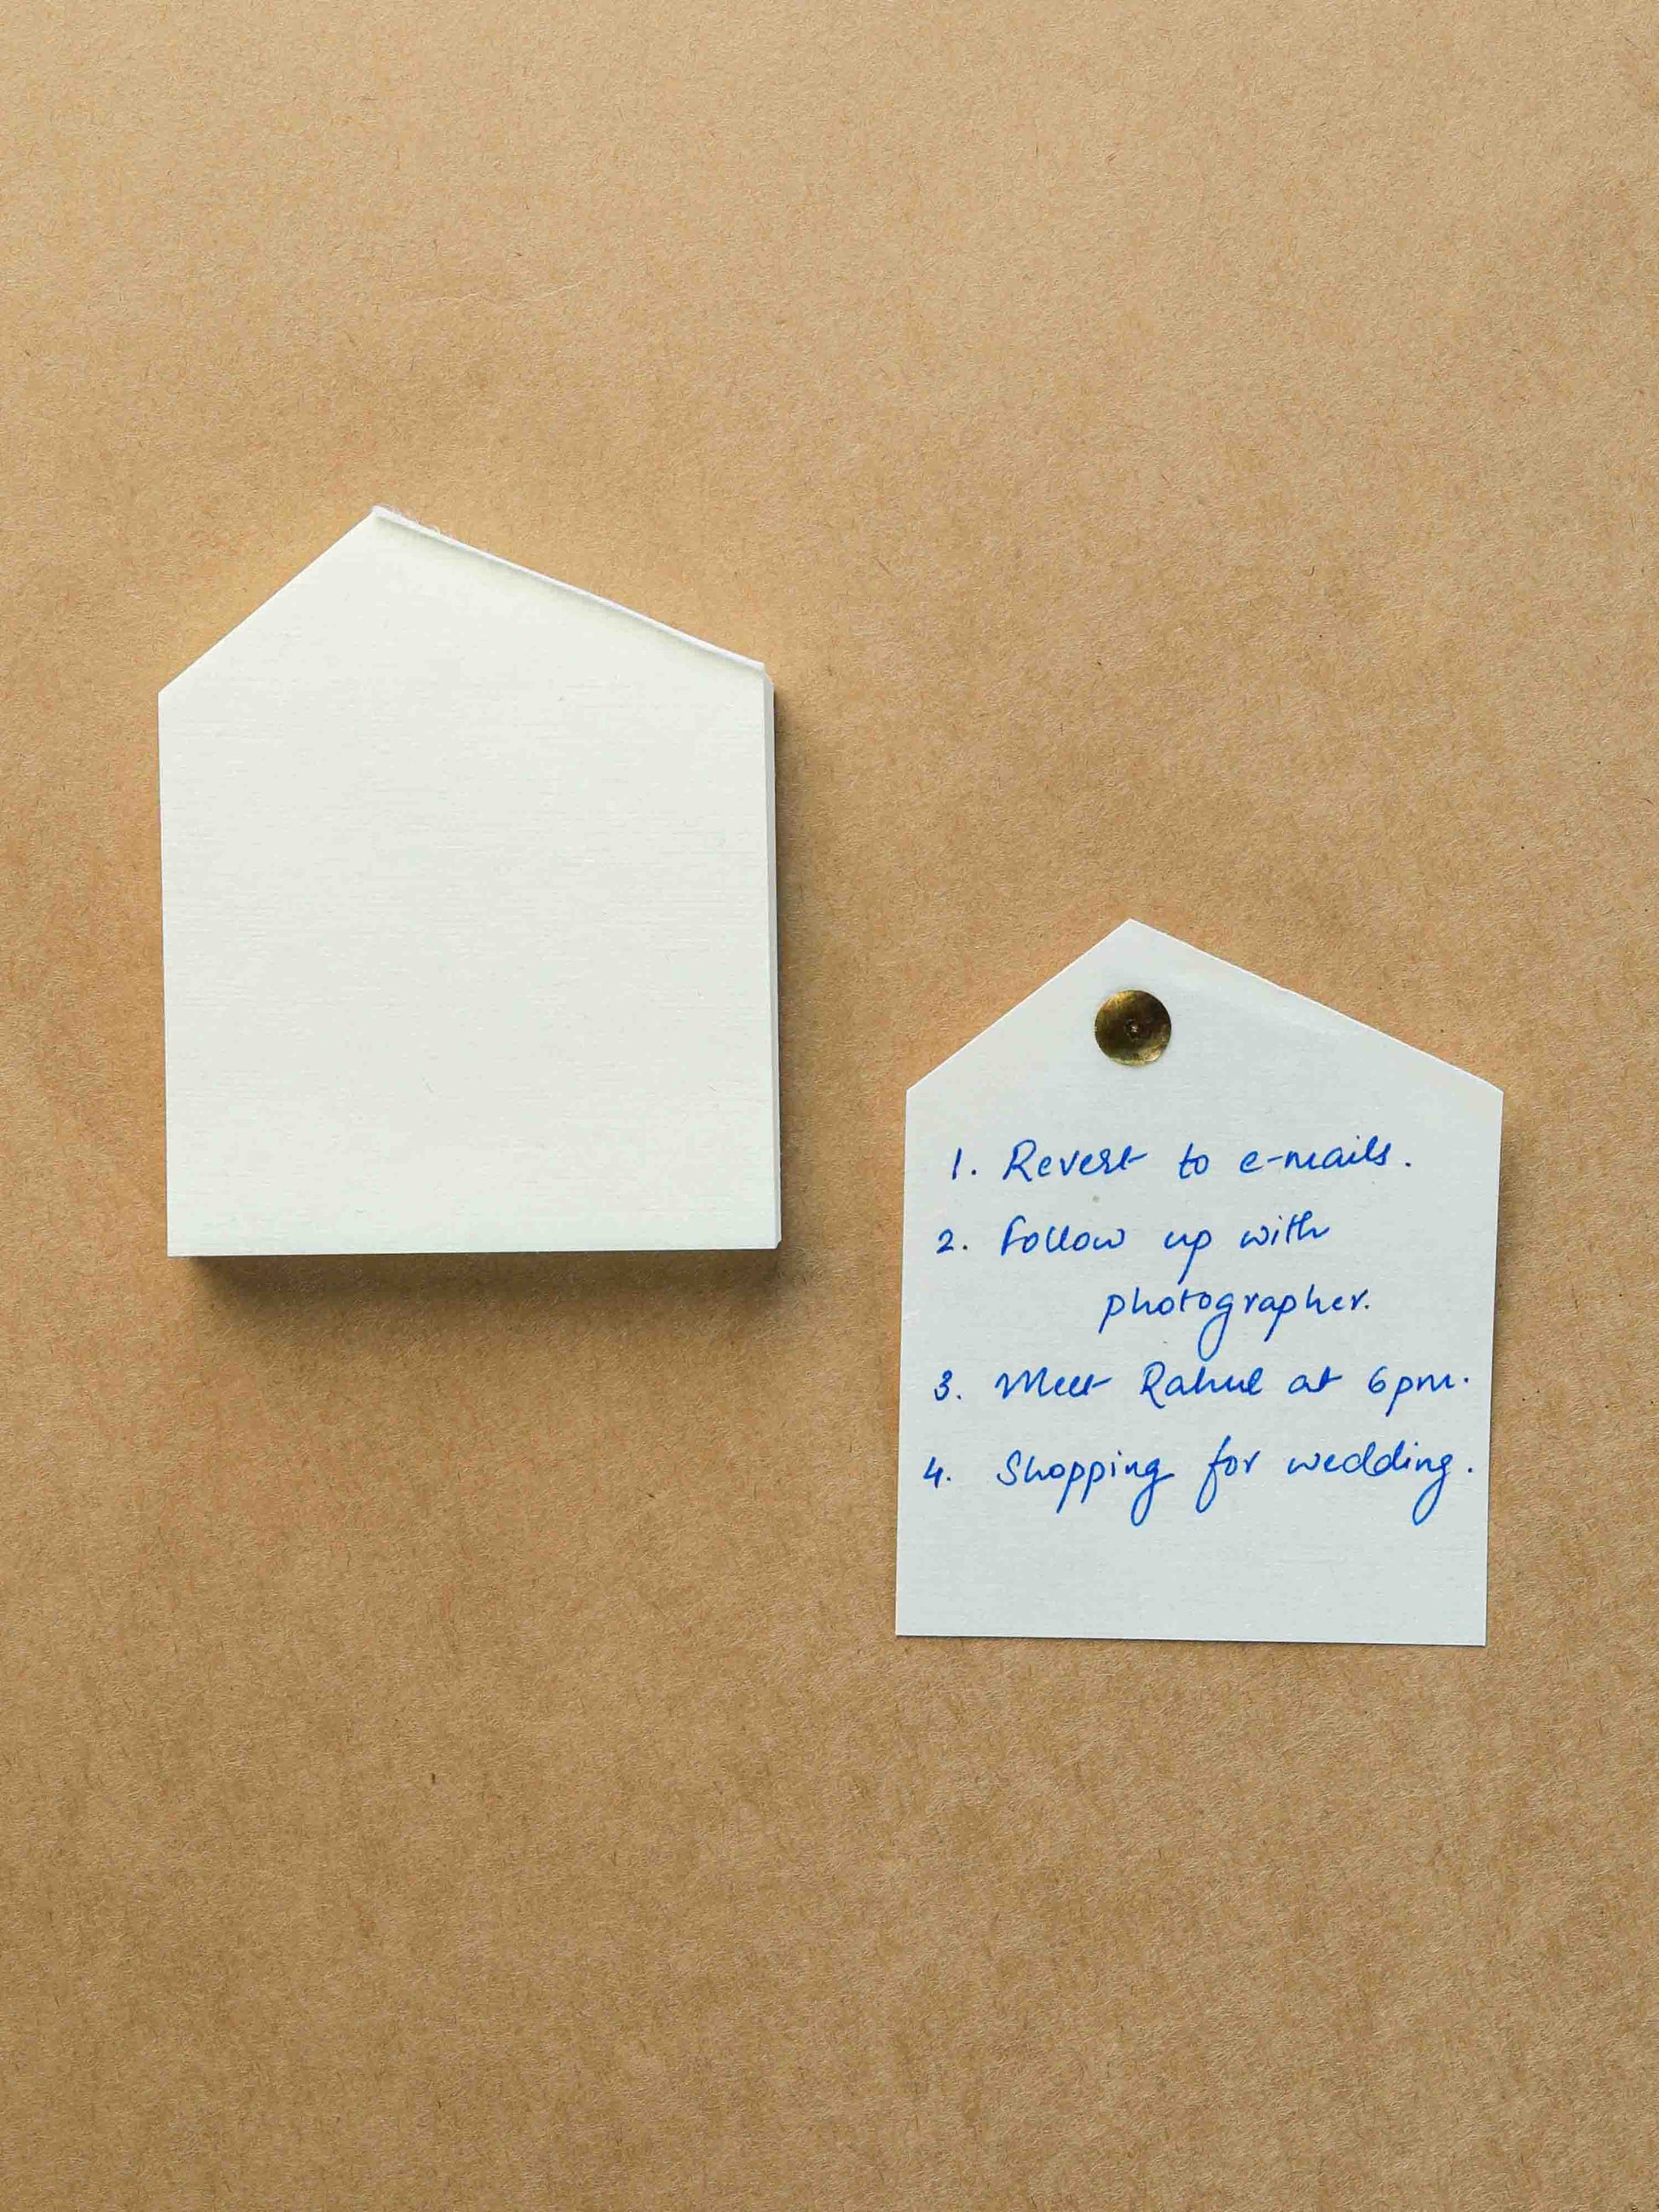 1. Revert to e-mails.
2. Follow up with
photographer.
3. Meet Rahul at 6pm.
4. Shopping for wedding.